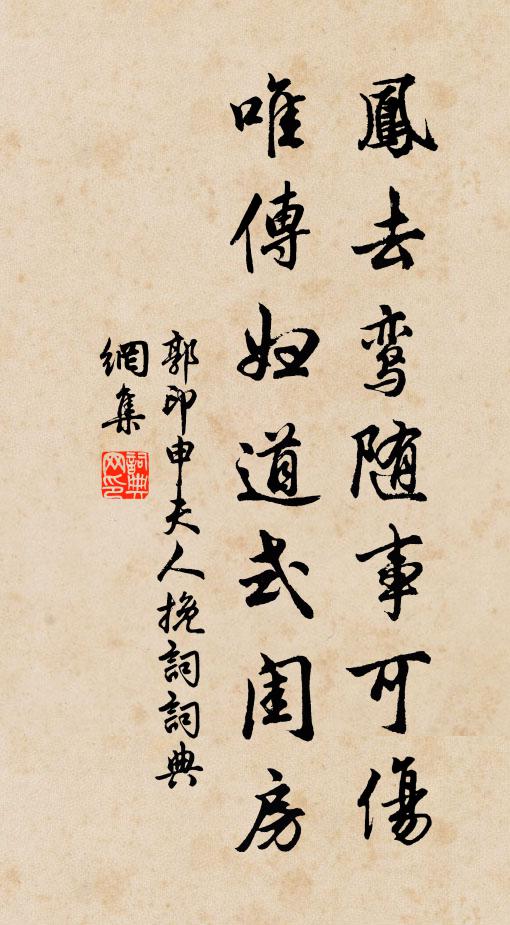 鳳去鸾随事可傷
唯傳妇道式闺房
郭印申夫人挽詞詞典
網集
詞典
网印